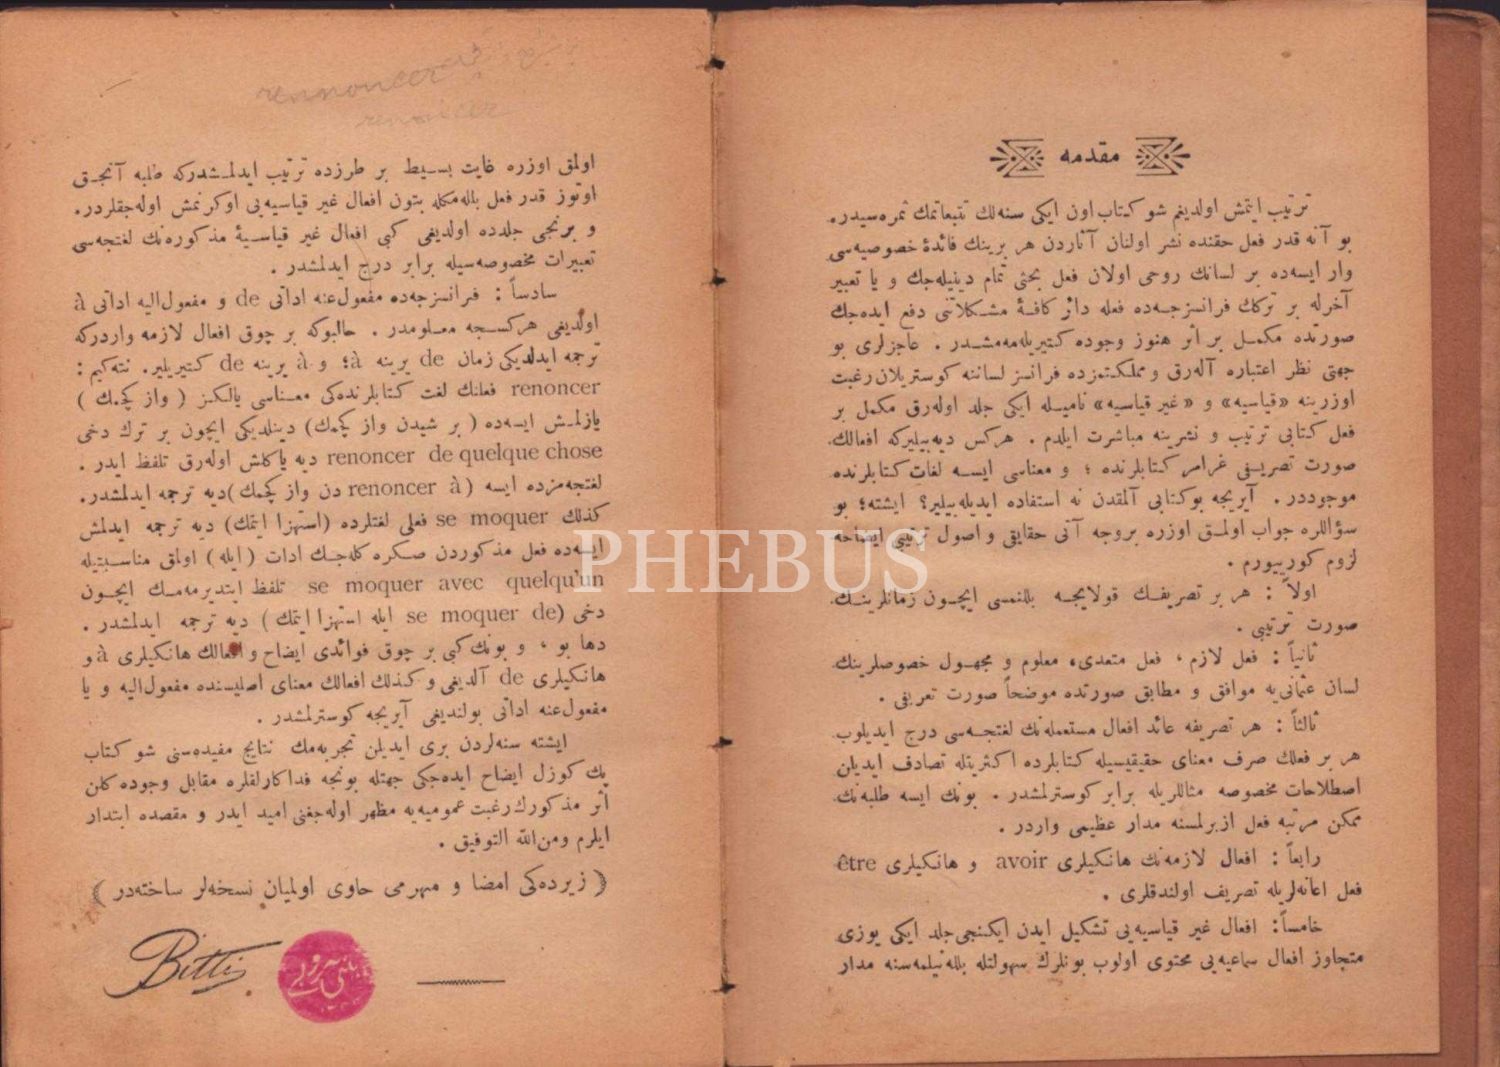 مقدمه
ترتيب ايتمش اولديغم شو كتاب اون ايكى سنه‌لك تتبعاتمك ثمره‌سيدر.
بو آنه قدر فعل حقنده نشر اولنان آثاردن هر برينك فائدهٔ خصوصيه‌سى
وار ايسه‌ده بر لسانك روحى اولان فعل بحثى تمام دينيله‌جك و يا تعبير
آخرله بر تركك فرانسزجه‌ده فعله دائر كافهٔ مشكلاتنى دفع ايده‌جك
صورتده مكمل بر اثر هنوز وجوده كتيريله‌مه‌مشدر . عاجزلرى بو
جهتى نظر اعتباره آله‌رق و مملكتمزده فرانسز لساننه كوستريلان رغبت
اوزرينه «قياسيه» و «غير قياسيه» ناميله ايكى جلد اوله‌رق مكمل بر
فعل كتابى ترتيب و نشرينه مباشرت ايلدم . هركس ديه‌بيليركه افعالك
صورت تصريفى غرامر كتابلرنده ؛ و معناسى ايسه لغات كتابلرنده
موجوددر . آيريجه بو كتابى آلمقدن نه استفاده ايديله‌بيلير؟ ايشته؛ بو
سؤاللره جواب اولمق اوزره بروجه آتى حقايق و اصول ترتيبى ايضاحه
لزوم كورييورم .
اولاً : هر بر تصريفك قولايجه بللنمسى ايچون زمانلرينك
صورت ترتيبى .
ثانياً : فعل لازم ، فعل متعدى، معلوم و مجهول خصوصلرينك
لسان عثمانى‌يه موافق و مطابق صورتده موضحاً صورت تعريفى .
ثالثاً : هر تصريفه عائد افعال مستعمله‌نك لغتجه‌سى درج ايديلوب
هر بر فعلك صرف معناى حقيقيسيله كتابلرده اكثريتله تصادف ايديلن
اصطلاحات مخصوصه مثاللريله برابر كوسترلمشدر . بونك ايسه طلبه‌نك
ممكن مرتبه فعل ازبرلمسنه مدار عظيمى واردر .
رابعاً : افعال لازمه‌نك هانكيلرى avoir و هانكيلرى être
فعل اعانه‌لريله تصريف اولندقلرى .
خامساً : افعال غير قياسيه‌يى تشكيل ايدن ايكنجى جلد ايكى يوزى
متجاوز افعال سماعيه‌يى محتوى اولوب بونلرك سهولتله بللنيلمه‌سنه مدار
rennoncer
renoncer
اولمق اوزره غايت بسيط بر طرزده ترتيب ايدلمشدركه طلبه آنجق
اوتوز قدر فعل بللمكله بتون افعال غير قياسيه‌يى اوكرنمش اوله‌جقلردر.
و برنجى جلدده اولديغى كبى افعال غير قياسيهٔ مذكوره‌نك لغتجه‌سى
تعبيرات مخصوصه‌سيله برابر درج ايدلمشدر .
سادساً : فرانسزجه‌ده مفعول‌عنه اداتى de و مفعول‌اليه اداتى à
اولديغى هركسجه معلومدر . حالبوكه بر چوق افعال لازمه واردركه
ترجمه ايدلديكى زمان de يرينه à؛ و à يرينه de كتيريلير. نته‌كيم :
renoncer فعلنك لغت كتابلرنده‌كى معناسى يالكز ( واز كچمك )
يازلمش ايسه‌ده ( بر شيدن واز كچمك) دينلديكى ايچون بر ترك دخى
renoncer de quelque chose ديه ياكلش اوله‌رق تلفظ ايدر .
لغتجه‌مزده ايسه ( renoncer à دن واز كچمك)ديه ترجمه ايدلمشدر.
كذلك se moquer فعلى لغتلرده (استهزا ايتمك) ديه ترجمه ايدلمش
ايسه‌ده فعل مذكوردن صكره كله‌جك ادات (ايله) اولمق مناسبتيله
se moquer avec quelqu'un تلفظ ايتديرمه‌مك ايچون
دخى (se moquer de ايله استهزا ايتمك) ديه ترجمه ايدلمشدر .
دها بو ، و بونك كبى بر چوق فوائدى ايضاح و افعالك هانكيلرى à و
هانكيلرى de آلديغى و كذلك افعالك معناى اصليسنده مفعول‌اليه و يا
مفعول‌عنه اداتى بولنديغى آيريجه كوسترلمشدر .
ايشته سنه‌لردن برى ايديلن تجربه‌مك نتايج مفيده‌سنى شو كتاب
پك كوزل ايضاح ايده‌جكى جهتله بونجه فداكارلقلره مقابل وجوده كلن
اثر مذكورك رغبت عموميه‌يه مظهر اوله‌جغنى اميد ايدر و مقصده ابتدار
ايلرم ومن الله التوفيق .
( زيرده‌كى امضا و مهرمى حاوى اولميان نسخه‌لر ساخته‌در )
Bitti
PHEBUS